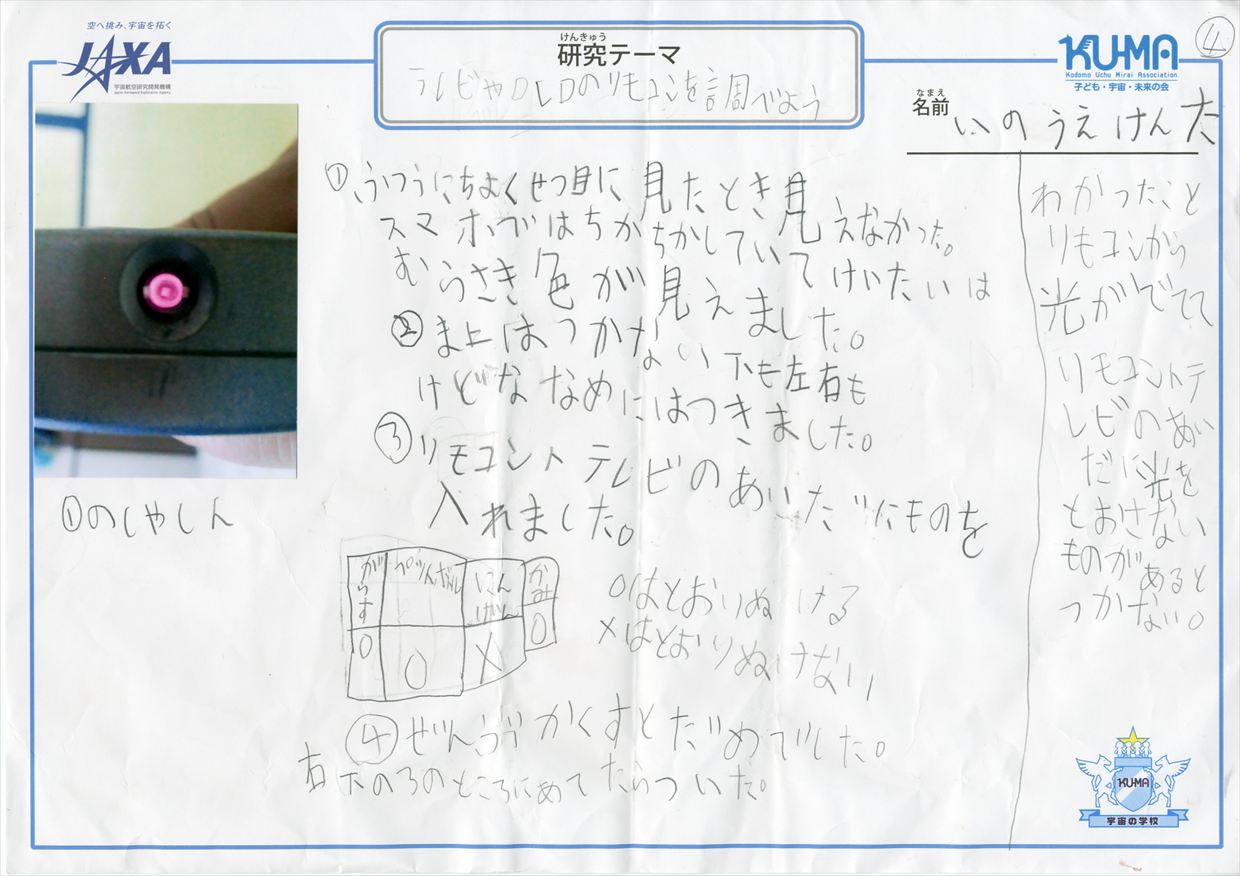 空へ挑み、宇宙を拓く
JAXA
宇宙航空研究開発機構
Japan Aerospace Exploration Agency
けんきゅう
研究テーマ
テレビやDVDのリモコンを調べよう
KU-MA
Kodomo Uchu Mirai Association
子ども・宇宙・未来の会
④
なまえ
名前 いのうえけんた
①ふつうにちよくせつ目に見たとき見えなかった。
スマホではちかちかしていてけいたいは
むらさき色が見えました。
②ま上はつかない下も左右も
けどななめにはつきました。
③リモコント テレビのあいだにものを
入れました。
がらす ぺっと にんげん かみ
○ ○ × ○
○はとおりぬける
×はとおりぬけない
④ぜんぶかくすとだめでした。
右下の3のところにあてたらついた。
①のしゃしん
わかったこと
リもコンから
光がでてて
リモコントテ
レビのあい
だに光を
とおさない
ものがあると
つかない。
KU-MA
宇宙の学校